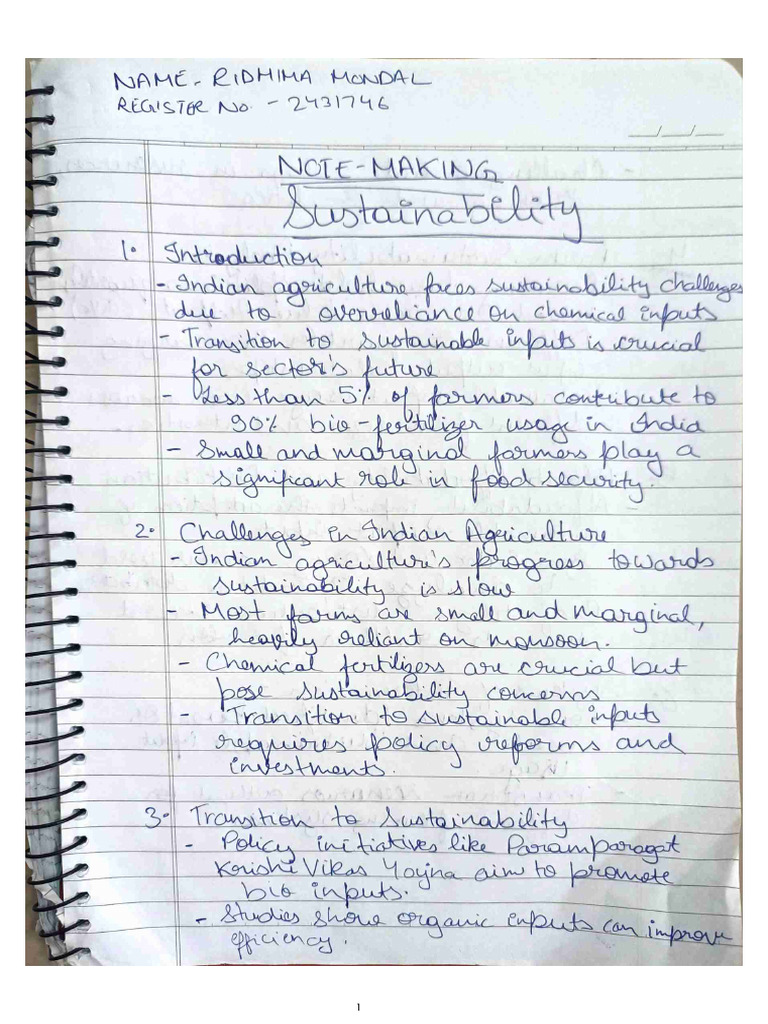 NAME- RIDHIMA MONDAL
REGISTER No. - 2431746
__/__/__
NOTE-MAKING
Sustainability
1. Introduction
- Indian agriculture faces sustainability challenges
due to overreliance on chemical inputs
- Transition to sustainable inputs is crucial
for sector's future
- Less than 5% of farmers contribute to
90% bio-fertilizer usage in India
- Small and marginal farmers play a
significant role in food security.
2. Challenges in Indian Agriculture
- Indian agriculture's progress towards
sustainability is slow
- Most farms are small and marginal,
heavily reliant on monsoon.
- Chemical fertilizers are crucial but
pose sustainability concerns
- Transition to sustainable inputs
requires policy reforms and
investments.
3. Transition to Sustainability
- Policy initiatives like Paramparagat
Krishi Vikas Yojna aim to promote
bio inputs.
- Studies show organic inputs can improve
efficiency.
1